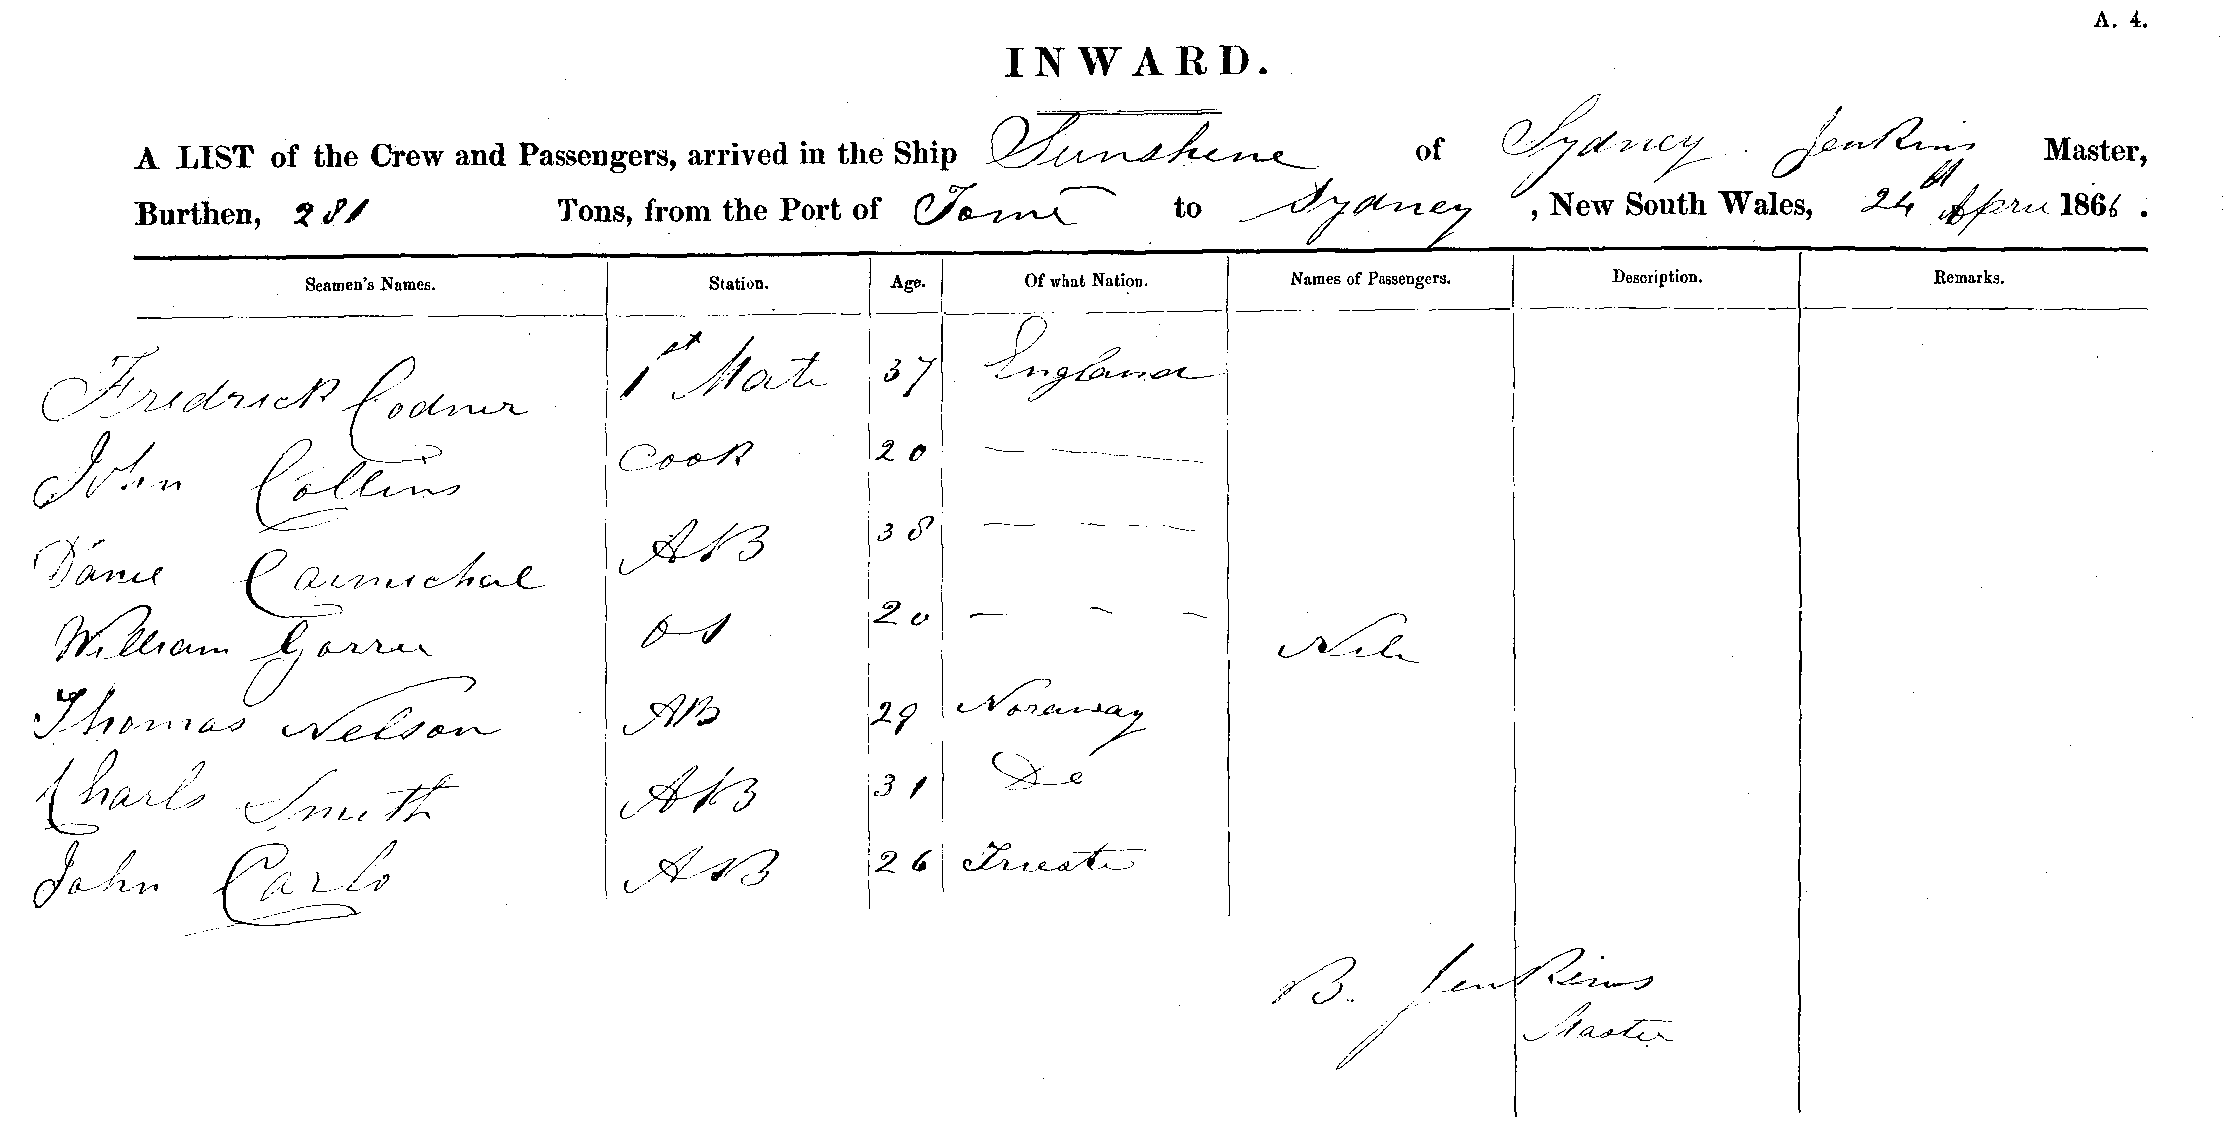 A. 4.
INWARD.
A LIST of the Crew and Passengers, arrived in the Ship Sunshine of Sydney Jenkins Master,
Burthen, 281 Tons, from the Port of Tomé to Sydney, New South Wales, 24th April 1866.
Seamen's Names. Station. Age. Of what Nation. Names of Passengers. Description. Remarks.
Fredrick Codner 1st Mate 37 England
John Collins Cook 20 — —
Carmichael AB 38 — — —
William OS 20 — — —
Nile
Thomas Nelson AB 29 Noraway
Charls Smith AB 31 Do
John Carlo AB 26 Trieste
B. Jenkins
Master